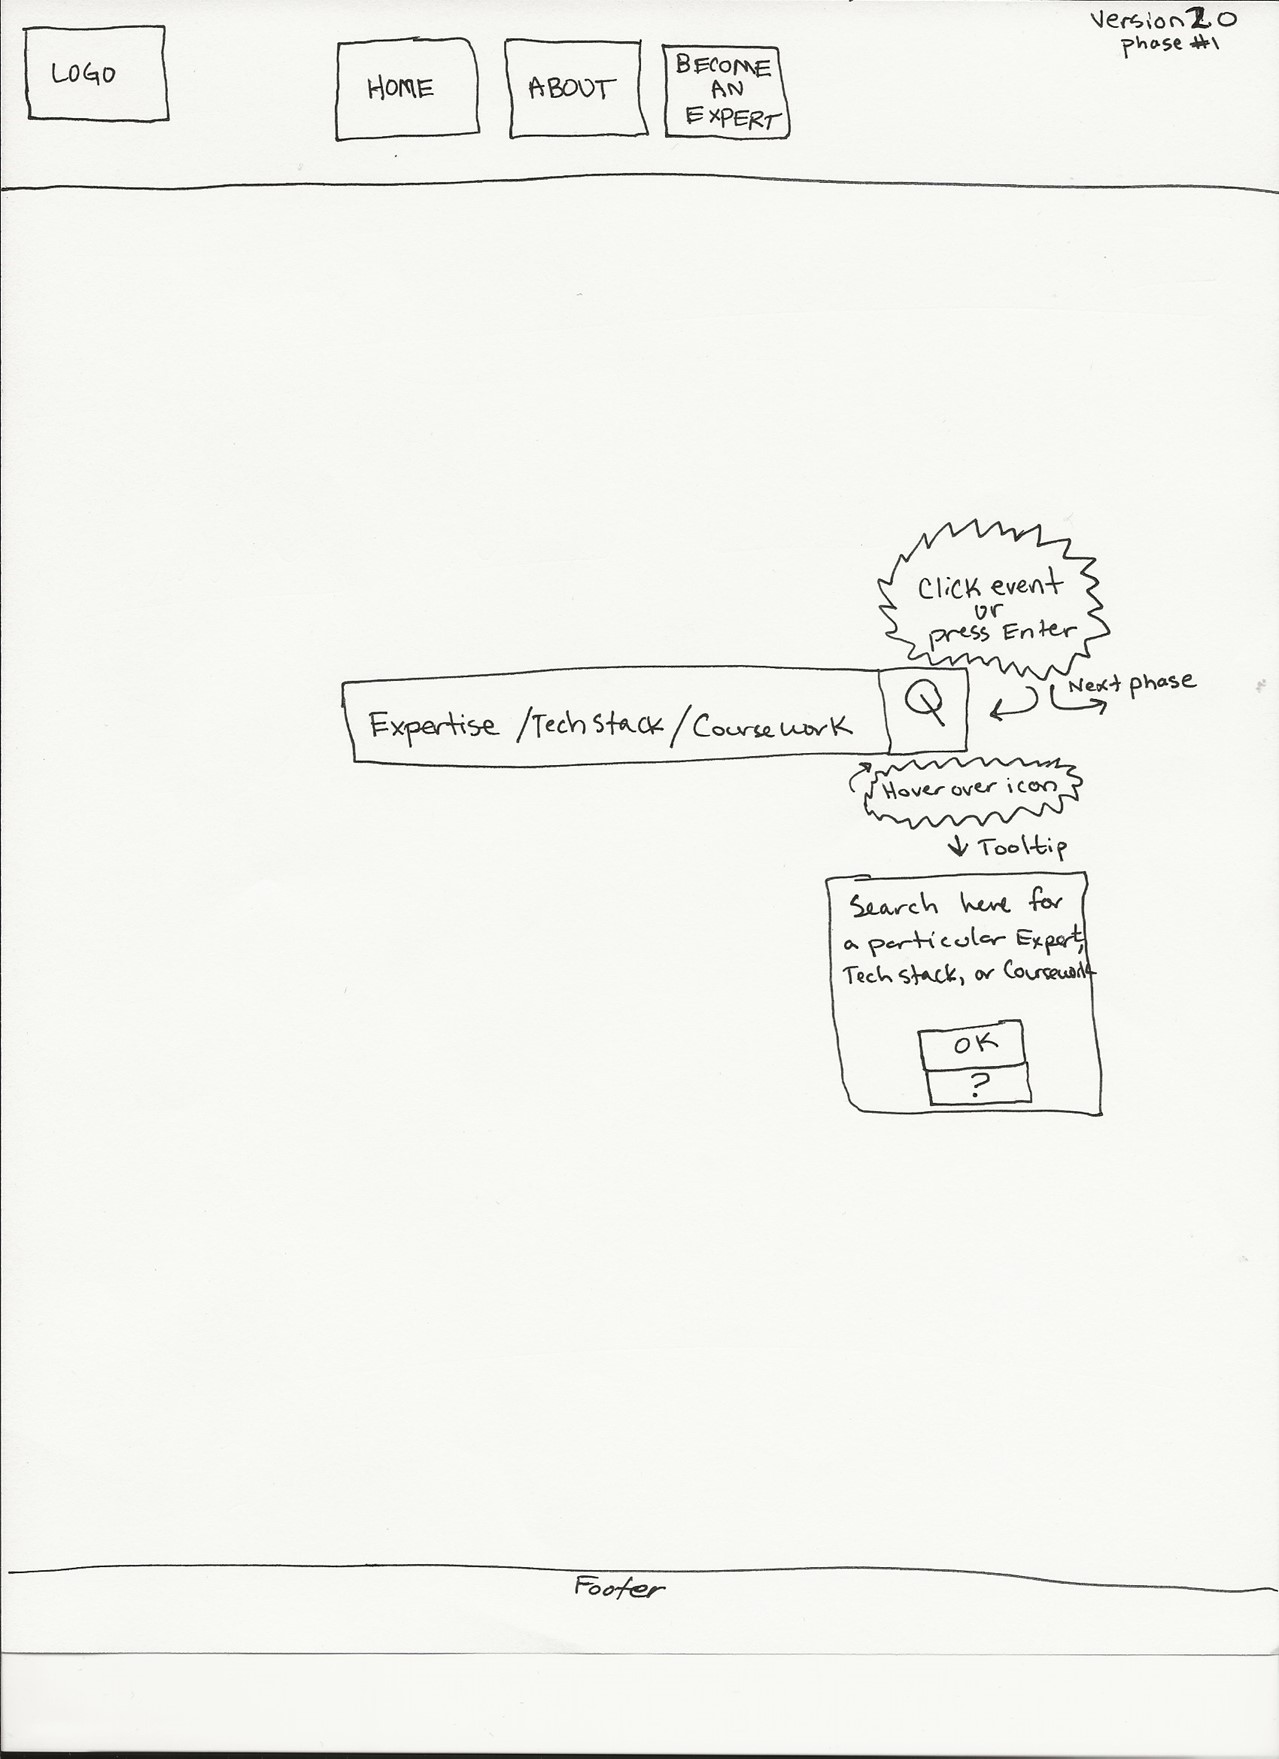 Version 2.0
phase #1
LOGO
HOME
ABOUT
BECOME
AN
EXPERT
Click event
or
press Enter
Next phase
Expertise / Tech stack / Coursework
Hover over icon
Tooltip
Search here for
a particular Expert,
Tech stack, or Coursework
OK
?
Footer